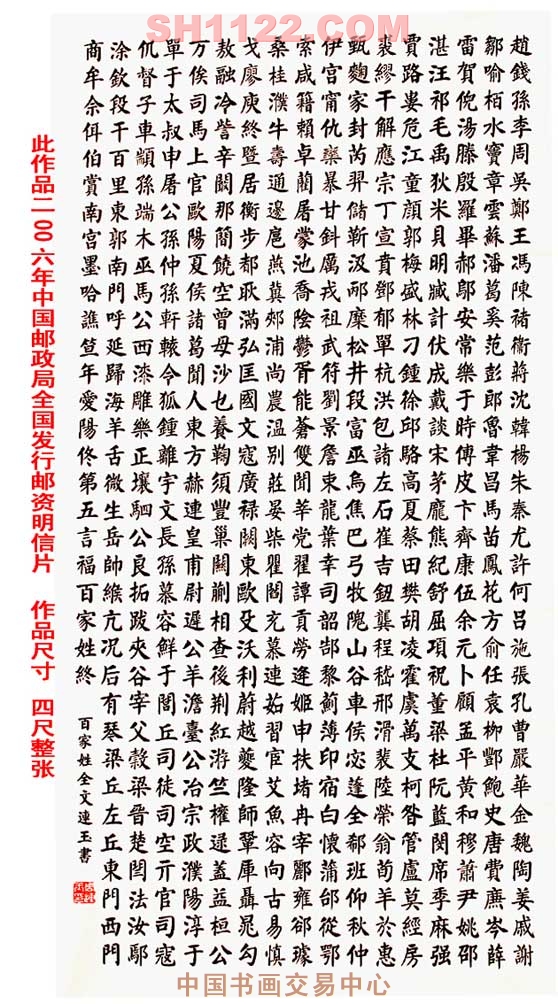 SH1122.COM
趙錢孫李周吳鄭王馮陳褚衞蔣沈韓楊朱秦尤許何呂施張孔曹嚴華金魏陶姜戚謝
鄒喻栢水竇章雲蘇潘葛奚范彭郎魯韋昌馬苗鳳花方俞任袁柳酆鮑史唐費廉岑薛
雷賀倪湯滕殷羅畢郝鄔安常樂于時傅皮卞齊康伍余元卜顧孟平黃和穆蕭尹姚邵
湛汪祁毛禹狄米貝明臧計伏成戴談宋茅龐熊紀舒屈項祝董梁杜阮藍閔席季麻强
賈路婁危江童顔郭梅盛林刁鍾徐邱駱高夏蔡田樊胡凌霍虞萬支柯昝管盧莫經房
裘繆干解應宗丁宣賁鄧郁單杭洪包諸左石崔吉鈕龔程嵇邢滑裴陸榮翁荀羊於惠
甄麴家封芮羿儲靳汲邴糜松井段富巫烏焦巴弓牧隗山谷車侯宓蓬全郗班仰秋仲
伊宫甯仇欒暴甘鈄厲戎祖武符劉景詹束龍葉幸司韶郜黎薊薄印宿白懷蒲邰從鄂
索咸籍賴卓藺屠蒙池喬陰鬱胥能蒼雙聞莘党翟譚貢勞逄姬申扶堵冉宰酈雍郤璩
桑桂濮牛壽通邊扈燕冀郟浦尚農溫别莊晏柴瞿閻充慕連茹習宦艾魚容向古易慎
戈廖庾終暨居衡步都耿滿弘匡國文寇廣禄闕東歐殳沃利蔚越夔隆師鞏厙聶晁勾
敖融冷訾辛闞那簡饒空曾毋沙乜養鞠須豐巢關蒯相查後荆紅游竺權逯蓋益桓公
万俟司馬上官歐陽夏侯諸葛聞人東方赫連皇甫尉遲公羊澹臺公冶宗政濮陽淳于
單于太叔申屠公孫仲孫軒轅令狐鍾離宇文長孫慕容鮮于閭丘司徒司空亓官司寇
仉督子車顓孫端木巫馬公西漆雕樂正壤駟公良拓跋夾谷宰父穀梁晋楚閆法汝鄢
涂欽段干百里東郭南門呼延歸海羊舌微生岳帥緱亢况后有琴梁丘左丘東門西門
商牟佘佴伯賞南宫墨哈譙笪年愛陽佟第五言福百家姓終
百家姓全文連玉書
此作品二00六年中国邮政局全国发行邮资明信片 作品尺寸 四尺整张
中国书画交易中心